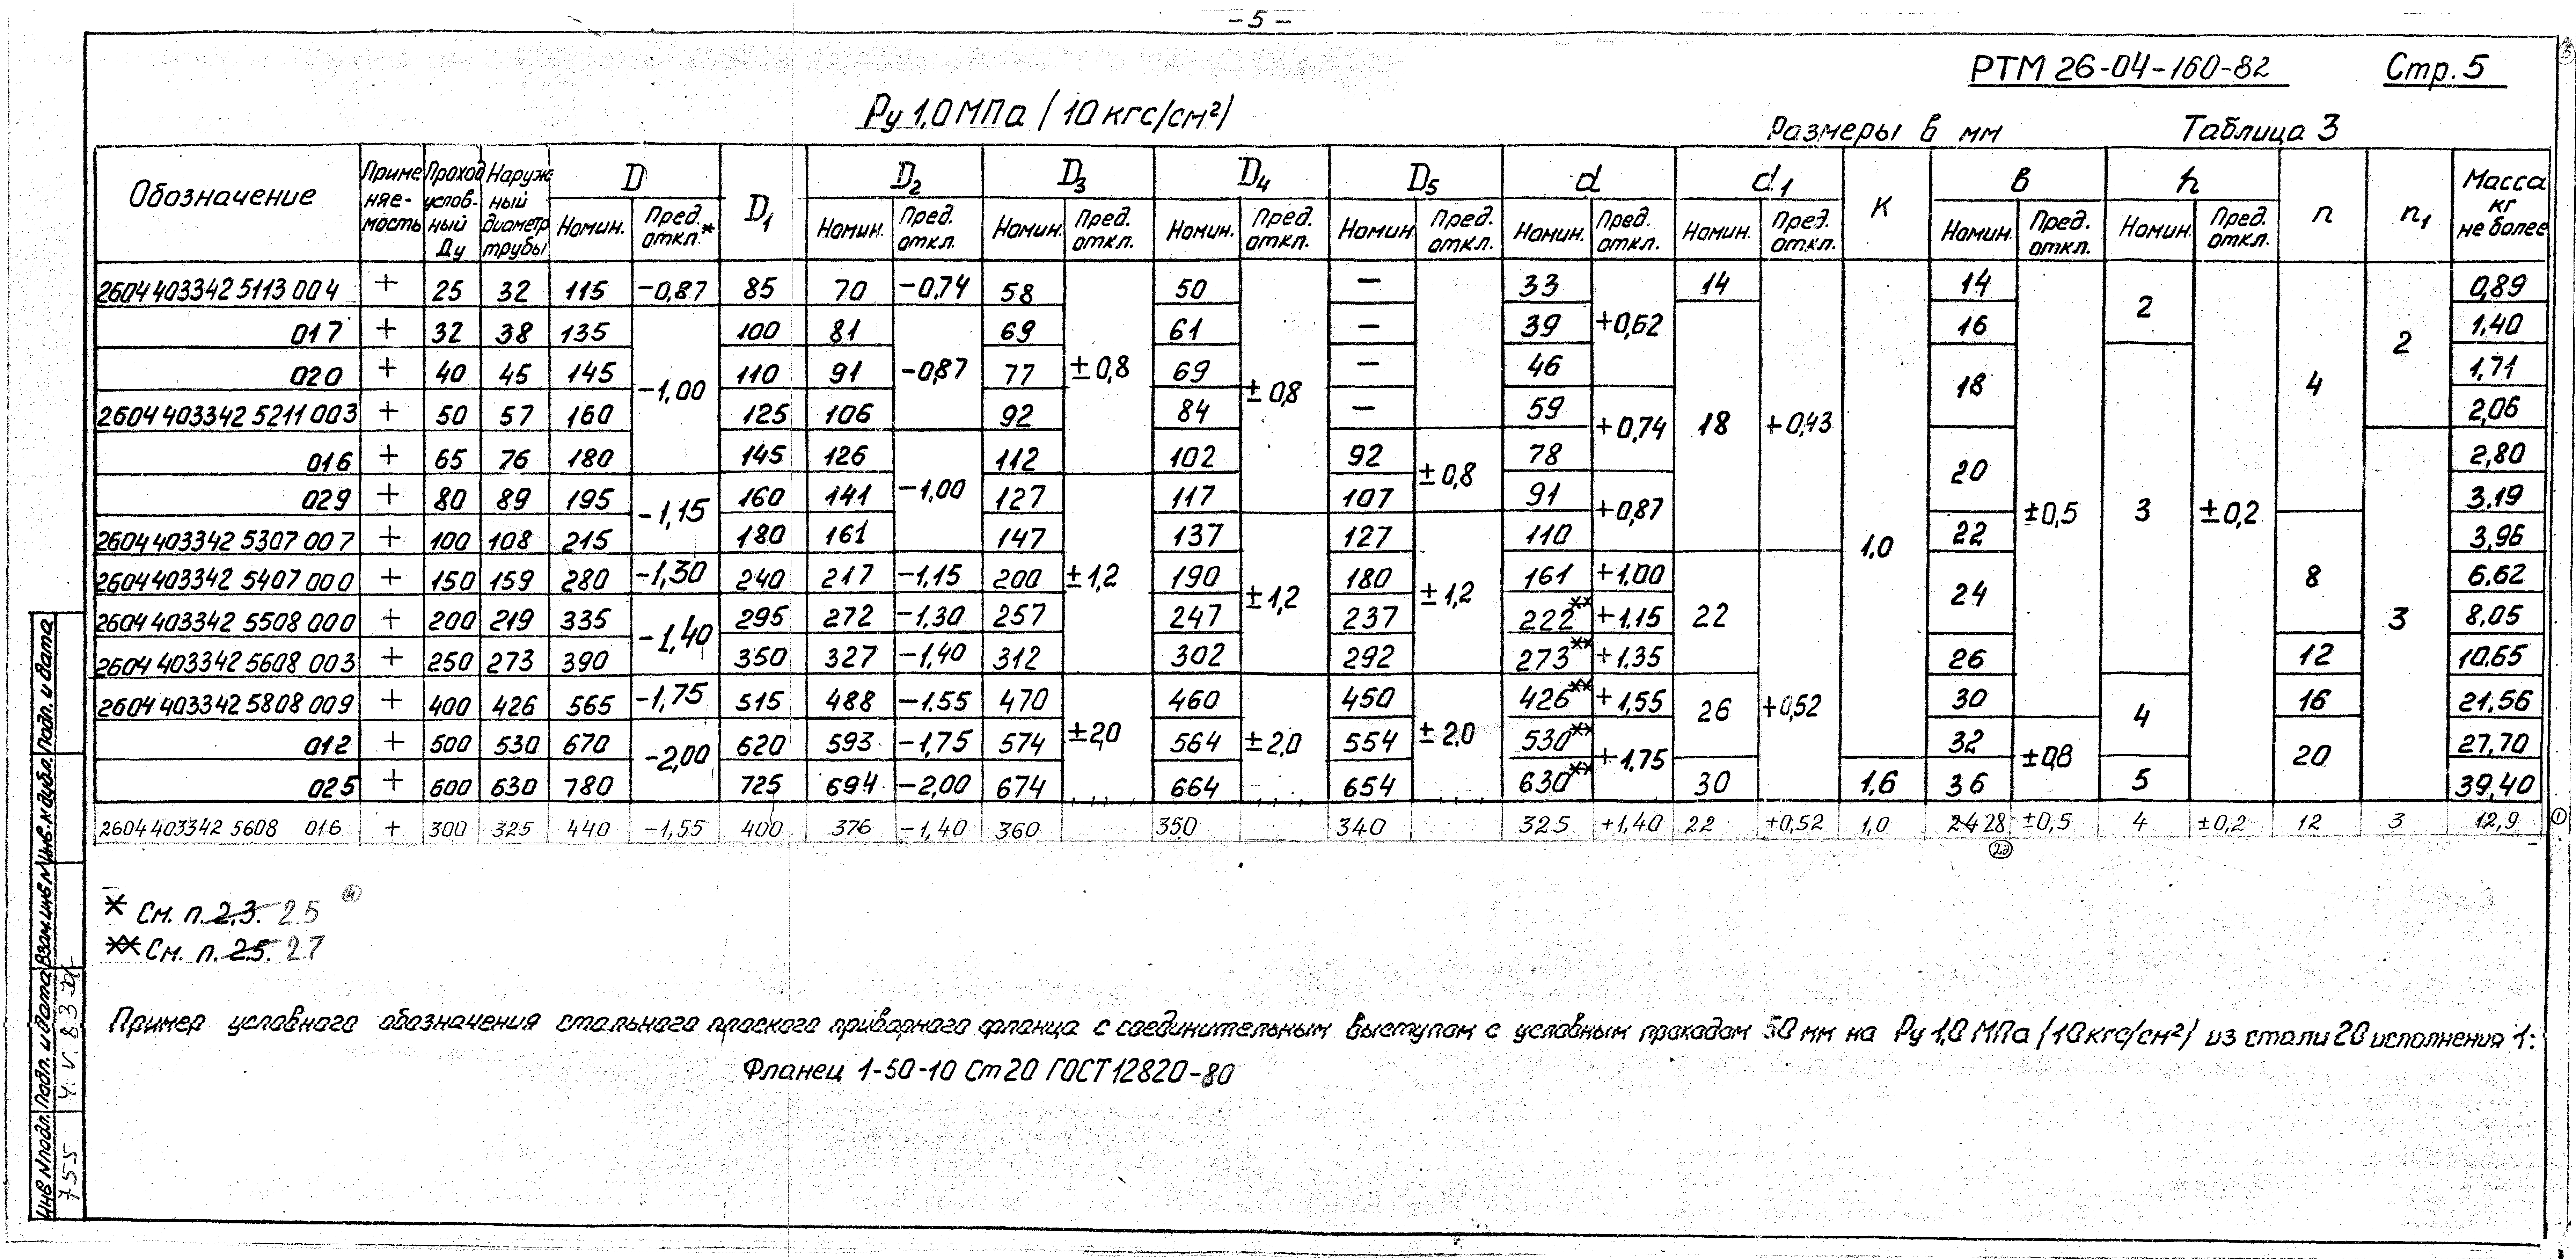 - 5 -
РТМ 26-04-160-82 Стр. 5
Ру 1,0 МПа (10 кгс/см²)
Размеры в мм Таблица 3
Обозначение Применяемость Проход условный Ду Наружный диаметр трубы D D1 D2 D3 D4 D5 d d1 К в h n n1 Масса кг не более
Номин. Пред. откл.* Номин. Пред. откл. Номин. Пред. откл. Номин. Пред. откл. Номин. Пред. откл. Номин. Пред. откл. Номин. Пред. откл. Номин. Пред. откл. Номин. Пред. откл.
2604 403342 5113 004 + 25 32 115 -0,87 85 70 -0,74 58 ±0,8 50 ±0,8 — 33 +0,62 14 +0,43 1,0 14 ±0,5 2 ±0,2 4 2 0,89
017 + 32 38 135 -1,00 100 81 -0,87 69 61 — 39 18 16 1,40
020 + 40 45 145 110 91 77 69 — 46 18 3 1,71
2604 403342 5211 003 + 50 57 160 125 106 92 84 — 59 +0,74 2,06
016 + 65 76 180 145 126 -1,00 112 102 92 ±0,8 78 20 3 2,80
029 + 80 89 195 -1,15 160 141 127 ±1,2 117 107 91 +0,87 3,19
2604 403342 5307 007 + 100 108 215 180 161 147 137 ±1,2 127 ±1,2 110 22 8 3,96
2604 403342 5407 000 + 150 159 280 -1,30 240 217 -1,15 200 190 180 161 +1,00 22 +0,52 24 6,62
2604 403342 5508 000 + 200 219 335 -1,40 295 272 -1,30 257 247 237 222** +1,15 8,05
2604 403342 5608 003 + 250 273 390 350 327 -1,40 312 302 292 273** +1,35 26 12 10,65
2604 403342 5808 009 + 400 426 565 -1,75 515 488 -1,55 470 ±2,0 460 ±2,0 450 ±2,0 426** +1,55 26 30 4 16 21,56
012 + 500 530 670 -2,00 620 593 -1,75 574 564 554 530** +1,75 32 ±0,8 20 27,70
025 + 600 630 780 725 694 -2,00 674 664 654 630** 30 1,6 36 5 39,40
2604 403342 5608 016 + 300 325 440 -1,55 400 376 -1,40 360 350 340 325 +1,40 22 +0,52 1,0 24 28 ±0,5 4 ±0,2 12 3 12,9
* См. п. 2.3. 2.5
** См. п. 2.5. 2.7
Пример условного обозначения стального плоского приварного фланца с соединительным выступом с условным проходом 50 мм на Ру 1,0 МПа (10 кгс/см²) из стали 20 исполнения 1:
Фланец 1-50-10 Ст 20 ГОСТ 12820-80
Инв. N подл. Подп. и дата Взам. инв. N Инв. N дубл. Подп. и дата
755